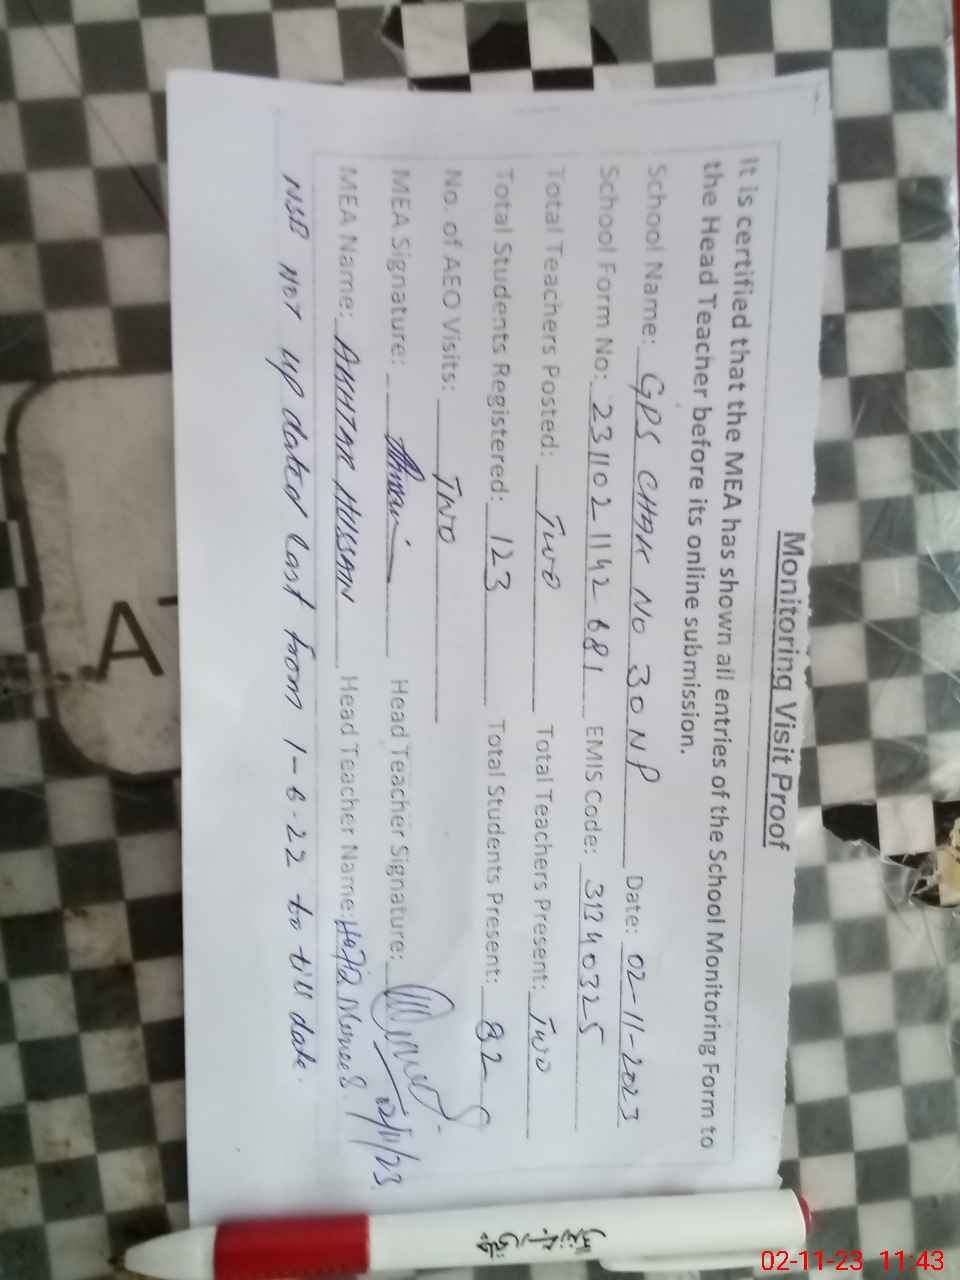 Monitoring Visit Proof
It is certified that the MEA has shown all entries of the School Monitoring Form to
the Head Teacher before its online submission.
School Name: GPS CHAK NO 30 NP Date: 02-11-2023
School Form No: 2311021142681 EMIS Code: 31340325
Total Teachers Posted: Two Total Teachers Present: Two
Total Students Registered: 123 Total Students Present: 82
No. of AEO Visits: Two
MEA Signature: Head Teacher Signature:
MEA Name: AKHTAR HUSSAN Head Teacher Name:
NSB NOT up dated last from 1-6-22 to till date.
02-11-23 11:43